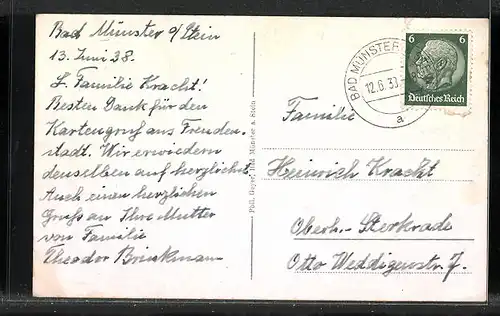 Bad Münster a/Stein
13. Juni 38.
L. Familie Kracht!
Besten Dank für den
Kartengruß aus Freuden-
stadt. Wir erwiedern
denselben auf herzlichst.
Auch einen herzlichen
Gruss an Ihre Mutter
von Familie
Theodor Brinkmann
Phil. Gayer, Bad Münster a. Stein
BAD MÜNSTER
a
6 6
Deutsches Reich
Familie
Heinrich Kracht
Oberh.-Sterkrade
Otto Weddigenstr. 7.